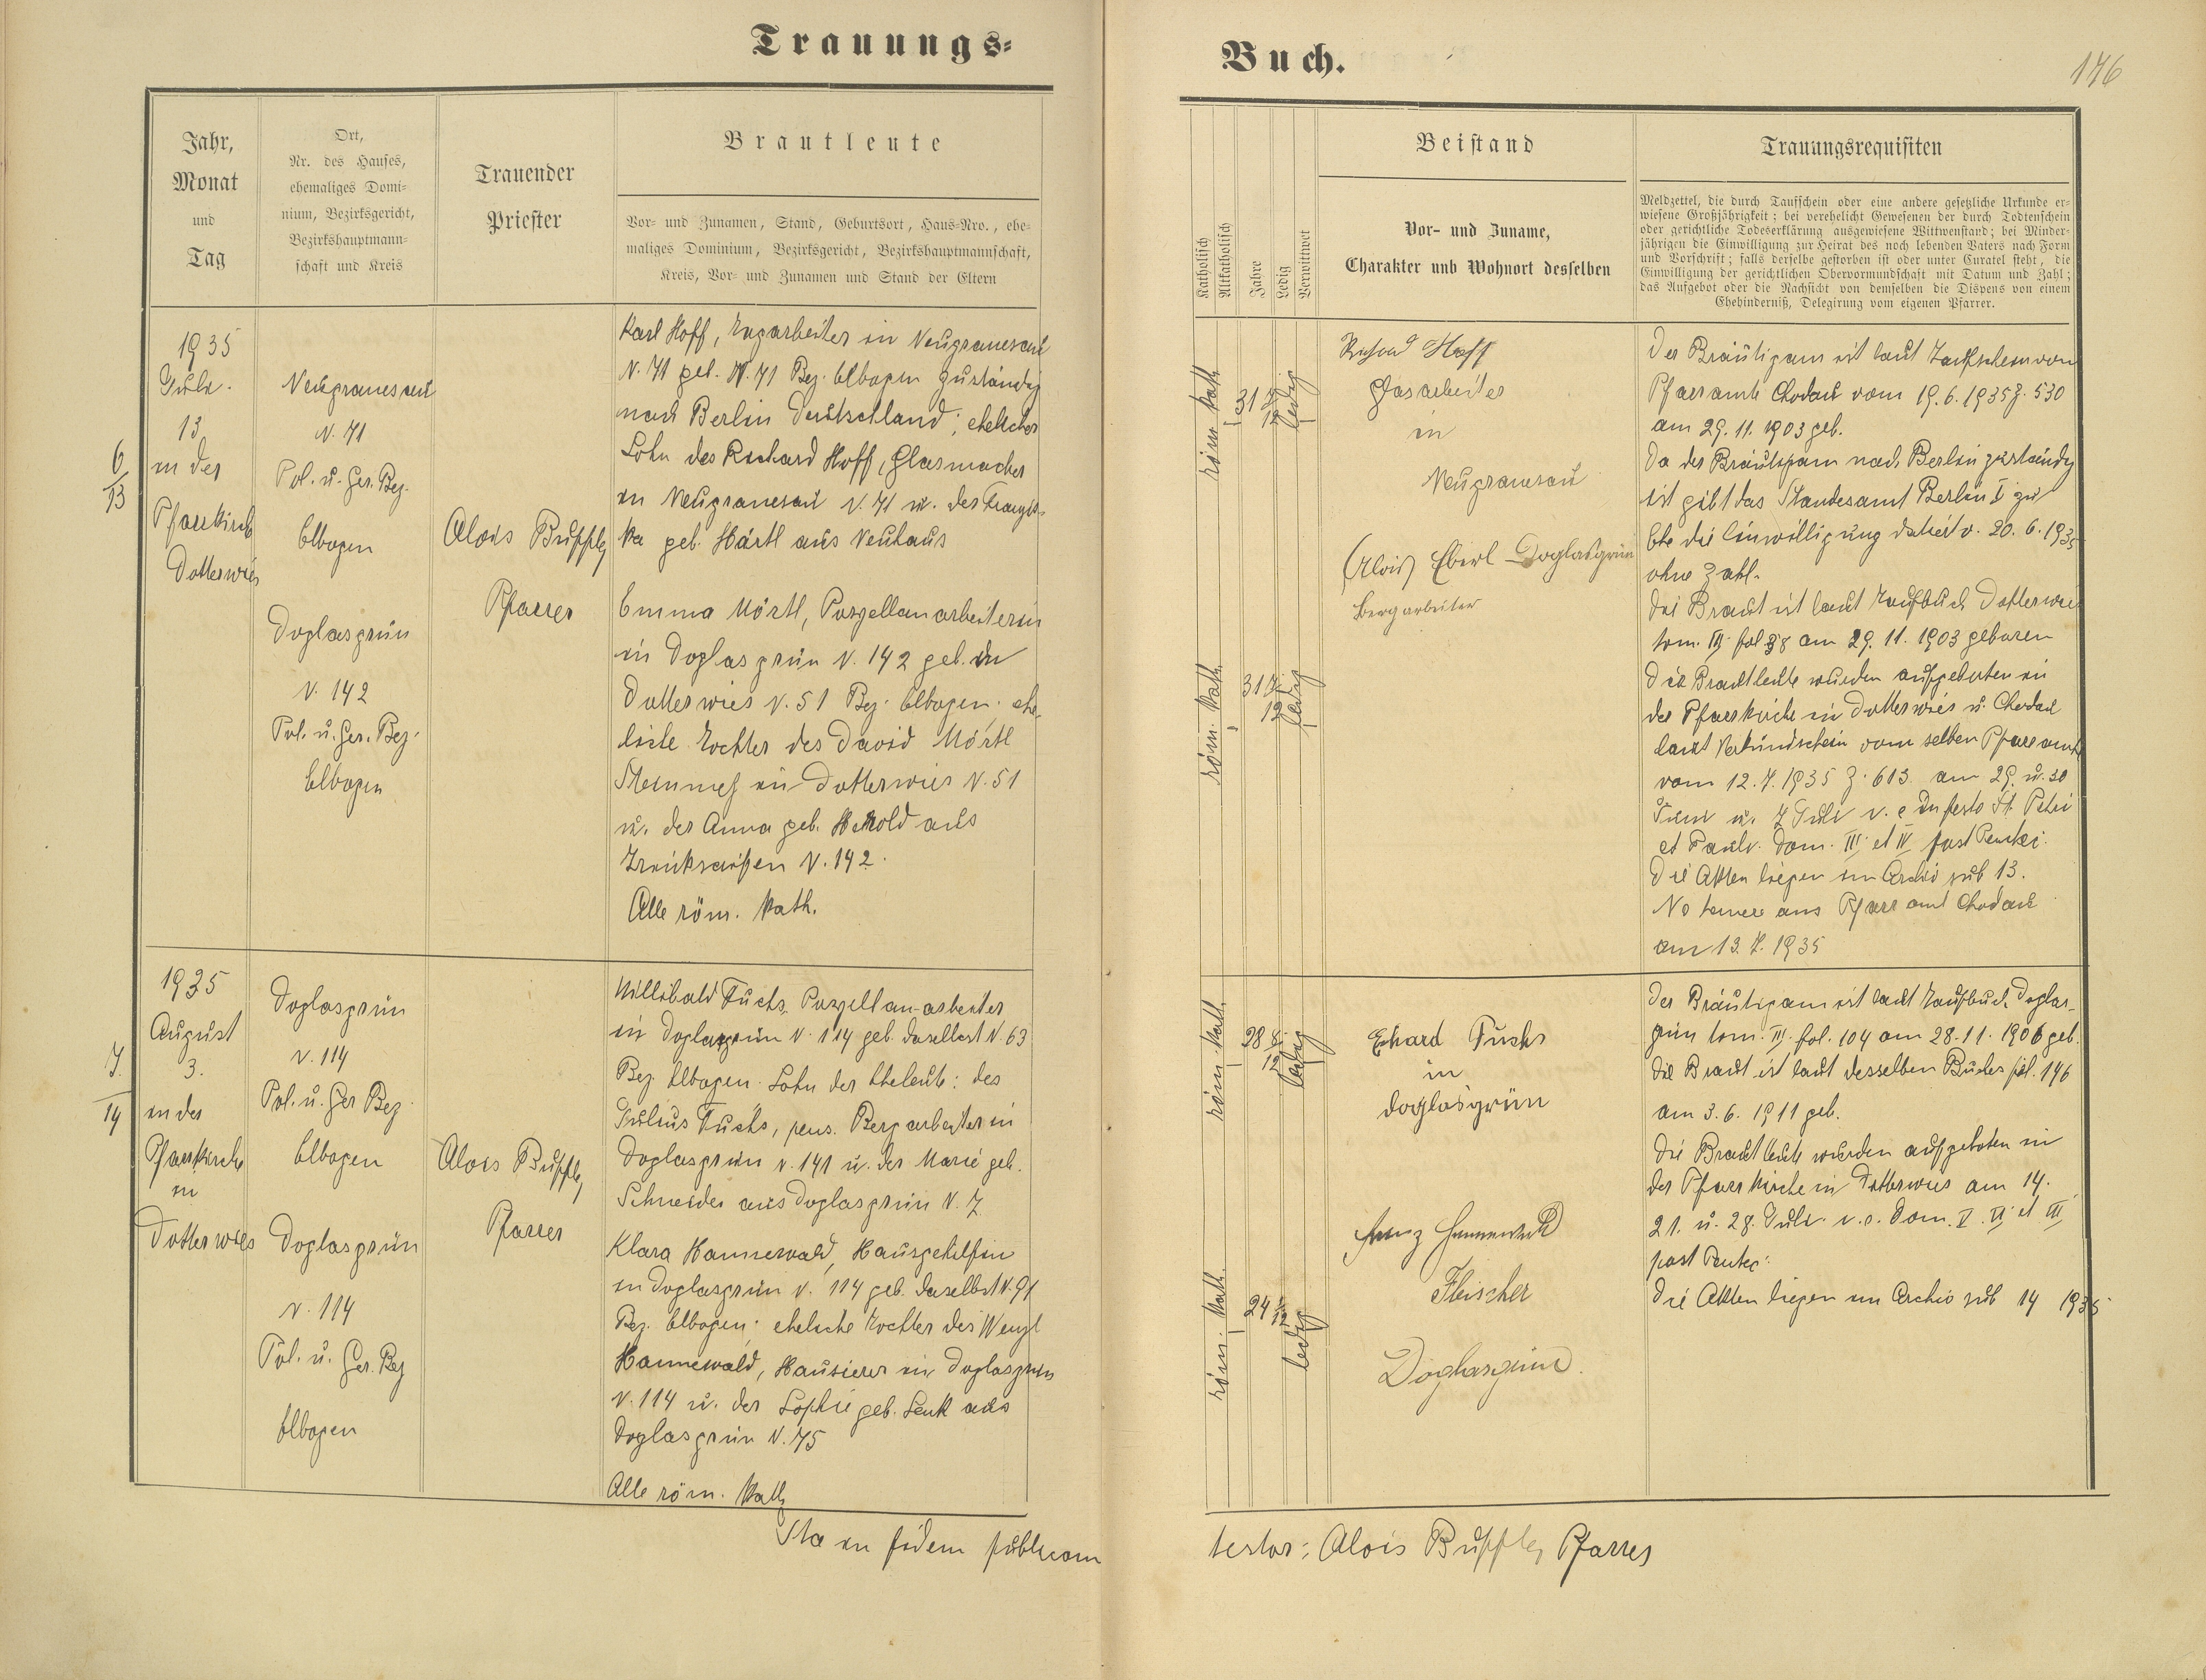 Trauungs=
Buch.
146
Jahr,
Monat
und
Tag
Ort,
Nr. des Hauses,
ehemaliges Domi=
nium, Bezirksgericht,
Bezirkshauptmann=
schaft und Kreis
Trauender
Priester
Brautleute
Vor= und Zunamen, Stand, Geburtsort, Haus=Nro., ehe=
maliges Dominium, Bezirksgericht, Bezirkshauptmannschaft,
Kreis, Vor= und Zunamen und Stand der Eltern
Katholisch
Altkatholisch
Jahre
Ledig
Verwitwet
Beistand
Vor= und Zuname,
Charakter unb Wohnort desselben
Trauungsrequisiten
Meldzettel, die durch Taufschein oder eine andere gesetzliche Urkunde er=
wiesene Großjährigkeit; bei verehelicht Gewesenen der durch Todtenschein
oder gerichtliche Todeserklärung ausgewiesene Wittwenstand; bei Minder=
jährigen die Einwilligung zur Heirat des noch lebenden Vaters nach Form
und Vorschrift; falls derselbe gestorben ist oder unter Curatel steht, die
Einwilligung der gerichtlichen Obervormundschaft mit Datum und Zahl;
das Aufgebot oder die Nachsicht von demselben die Dispens von einem
Ehehinderniß, Delegirung vom eigenen Pfarrer.
6
13
1935
Juli.
13
in der
Pfarrkirche
Dotterwies
Neugranesau
N. 71
Pol. u. Ger. Bez.
Elbogen
Doglasgrün
N. 142
Pol. u. Ger. Bez.
Elbogen
Alois
Pfarrer
Karl Hoff, in Neugranesau
N. 71 geb. N. 71 Bez. Elbogen zuständig
nach Berlin Deutschland; ehelicher
Sohn des Richard Hoff, Glasmacher
in Neugranesau N. 71 u. der Franzis-
ka geb. Härtl aus Neuhaus
Emma Mörtl, Porzellanarbeiterin
in Doglasgrün N. 142 geb. in
Dotterwies N. 51 Bez. Elbogen. ehe-
liche Tochter des David Mörtl
Steinmetz in Dotterwies N. 51
u. der Anna geb. Herold aus
N. 142.
Alle röm. kath.
röm. kath.
31 7/12
ledig
röm. kath.
31 7/12
ledig
Richard Hoff
Glasarbeiter
in
Neugranesau
(Alois) Eberl Doglasgrün
Bergarbeiter
Der Bräutigam ist laut Taufschein vom
Pfarramte Chodau vom 19.6.1935 Z. 530
am 29.11.1903 geb.
Da der Bräutigam nach Berlin zuständig
ist gibt das Standesamt Berlin I zur
Ehe die Einwilligung datiert v. 20.6.1935
ohne Zahl.
Die Braut ist laut Taufbuch Dotterwies
tom. III fol 38 am 29.11.1903 geboren
Die Brautleute wurden aufgeboten in
der Pfarrkirche in Dotterwies u. Chodau
laut Verkündschein vom selben Pfarramte
vom 12.7.1935 Z. 613. am 29. u. 30
Juni u. 7 Juli v. e In festo St. Petri
et Pauli. Dom. III et IV post Pentec.
Die Akten liegen im Archiv sub 13.
No temere ans Pfarramt Chodau
am 13.7.1935
7
14
1935
August
3.
in der
Pfarrkirche
in
Dotterwies
Doglasgrün
N. 114
Pol. u. Ger Bez.
Elbogen
Doglasgrün
N. 114
Pol. u. Ger. Bez
Elbogen
Alois
Pfarrer
Willibald Fuchs, Porzellanarbeiter
in Doglasgrün N. 114 geb. daselbst N. 63
Bez. Elbogen. Sohn der Eheleute: des
Julius Fuchs, pens. Bergarbeiter in
Doglasgrün N. 141 u. der Marie geb.
Schneider aus Doglasgrün N. 7
Klara Hannewald, Hausgehilfin
in Doglasgrün N. 114 geb. daselbst N. 91
Bez. Elbogen; eheliche Tochter des Wenzl
Hannewald, Hausierer in Doglasgrün
N. 114 u. der Sophie geb. Lenk aus
Doglasgrün N. 75
Alle röm. kath
röm. kath.
28 8/12
ledig
röm. kath.
24 1/12
ledig
Erhard Fuchs
in
Doglasgrün
Franz Hannewald
Fleischer
Doglasgrün.
Der Bräutigam ist laut Taufbuch Doglas-
grün tom. III. fol. 104 am 28.11.1906 geb.
Die Braut ist laut desselben Buches fol. 146
am 3.6.1911 geb.
Die Brautleute wurden aufgeboten in
der Pfarrkirche in Dotterwies am 14.
21. u. 28. Juli v. e. Dom. V. VI et VII
post Pentec.
Die Akten liegen im Archiv sub 14 1935
Ita in fidem publicam
testor: Alois Pfarrer